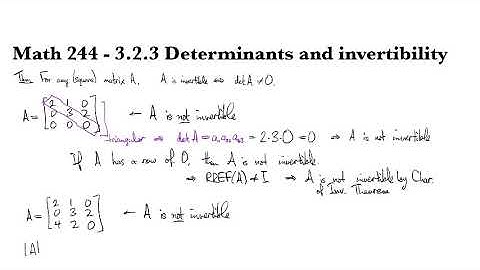 Math 244 - 3.2.3 Determinants and invertibility
Thm For any (square) matrix A, A is invertible ⇔ det A ≠ 0.
A = [2 1 0
0 3 2
0 0 0] ← A is not invertible
triangular ⇒ det A = a₁₁a₂₂a₃₃ = 2·3·0 = 0 ⇒ A is not invertible
If A has a row of 0, then A is not invertible.
⇒ RREF(A) ≠ I ⇒ A is not invertible by Char.
of Inv. Theorem
A = [2 1 0
0 3 2
4 2 0] ← A is not invertible
|A|